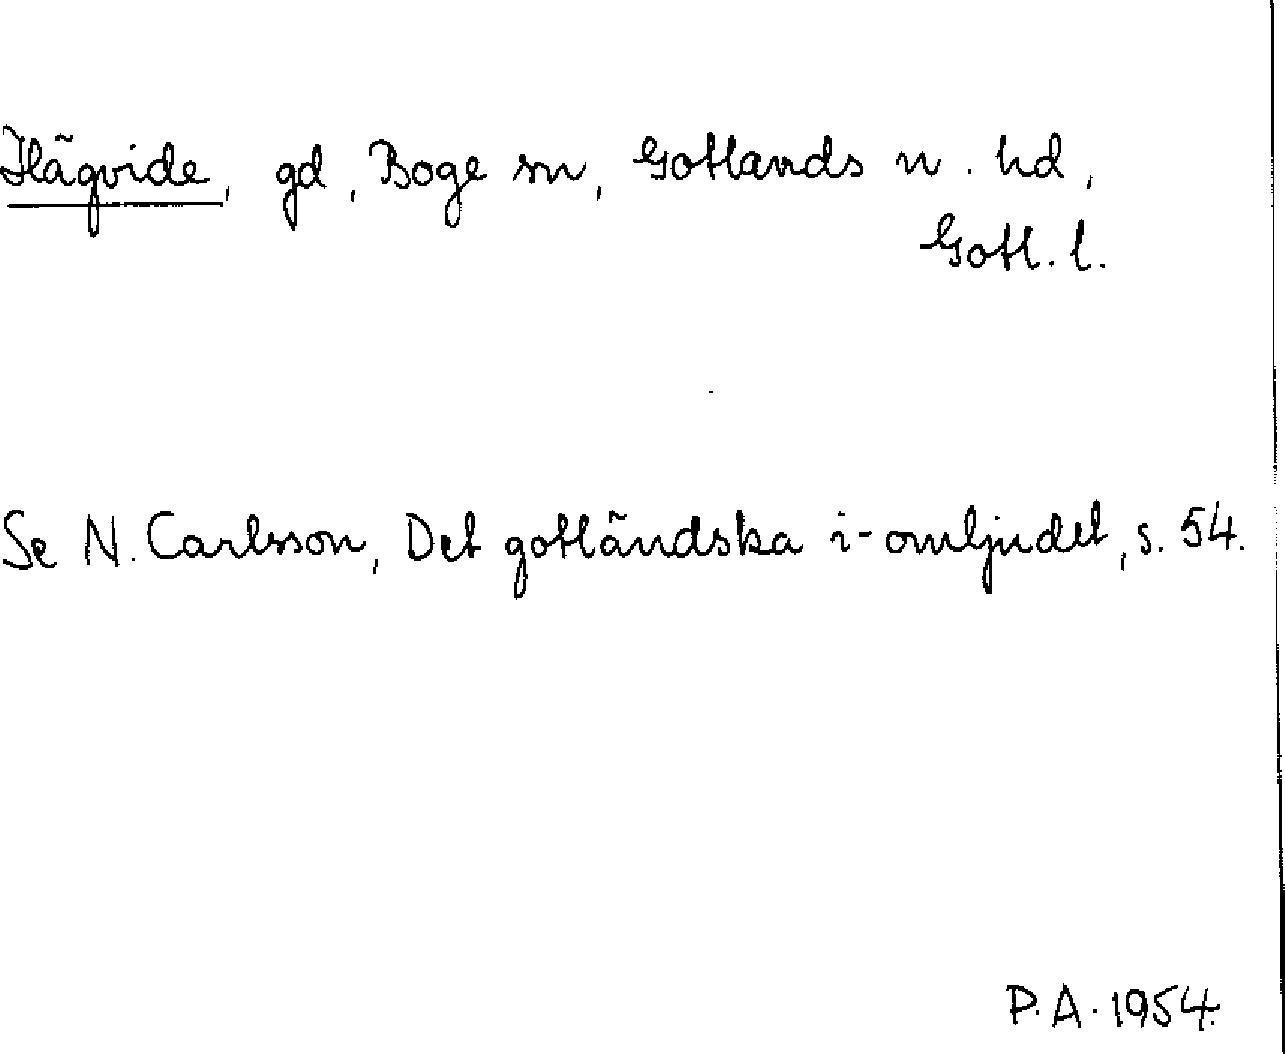 Hägvide, gd, Boge sn, Gotlands n. hd,
Gotl. l.
Se N. Carlsson, Det gotländska i-omljudet, s. 54.
P.A. 1954.